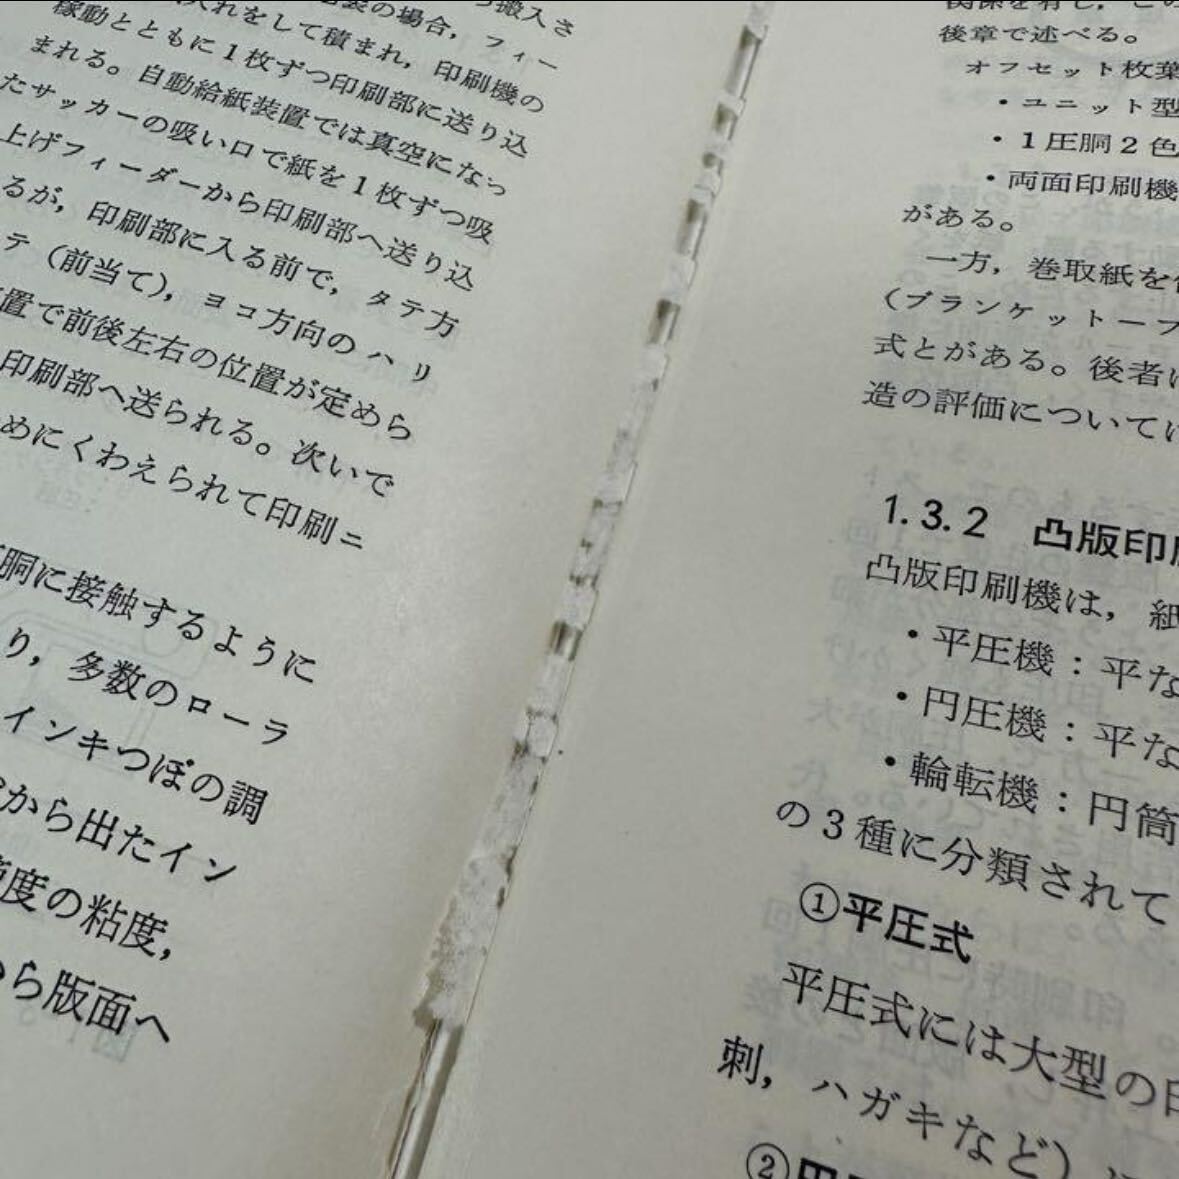 搬入さ
入れをして積まれ，印刷機の場合，フィー
稼動とともに１枚ずつ印刷部に送り込
まれる。自動給紙装置では真空になっ
たサッカーの吸い口で紙を１枚ずつ吸
上げフィーダーから印刷部へ送り込
るが，印刷部に入る前で，タテ方
テ（前当て），ヨコ方向のハリ
置で前後左右の位置が定めら
印刷部へ送られる。次いで
めにくわえられて印刷ニ
胴に接触するように
り，多数のローラ
インキつぼの調
から出たイン
度の粘度，
ら版面へ
後章で述べる。
オフセット枚葉
・ユニット型
・１圧胴２色
・両面印刷機
がある。
一方，巻取紙を
（ブランケットーブ
式とがある。後者は
造の評価については
1.3.2　凸版印刷
凸版印刷機は，紙
・平圧機：平な
・円圧機：平な
・輪転機：円筒
の３種に分類されて
①平圧式
平圧式には大型の印
刺，ハガキなど）に
②円